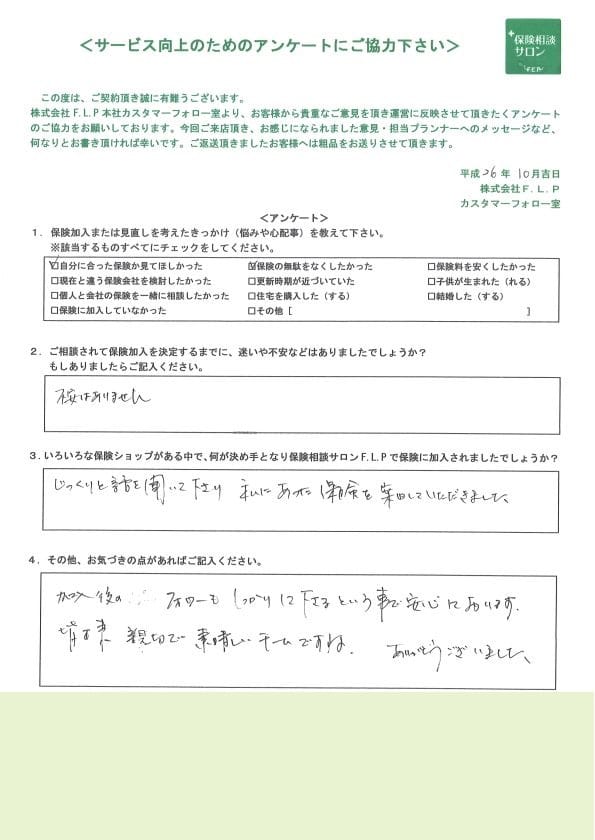 ＜サービス向上のためのアンケートにご協力下さい＞
+保険相談
サロン
F.L.P
この度は、ご契約頂き誠に有難うございます。
株式会社Ｆ.Ｌ.Ｐ本社カスタマーフォロー室より、お客様から貴重なご意見を頂き運営に反映させて頂きたくアンケート
のご協力をお願いしております。今回ご来店頂き、お感じになられました意見・担当プランナーへのメッセージなど、
何なりとお書き頂ければ幸いです。ご返送頂きましたお客様へは粗品をお送りさせて頂きます。
平成26年 10月吉日
株式会社Ｆ.Ｌ.Ｐ
カスタマーフォロー室
＜アンケート＞
１．保険加入または見直しを考えたきっかけ（悩みや心配事）を教えて下さい。
※該当するものすべてにチェックをしてください。
☑自分に合った保険か見てほしかった ☑保険の無駄をなくしたかった □保険料を安くしたかった
□現在と違う保険会社を検討したかった □更新時期が近づいていた □子供が生まれた（れる）
□個人と会社の保険を一緒に相談したかった □住宅を購入した（する） □結婚した（する）
□保険に加入していなかった □その他［ ］
２．ご相談されて保険加入を決定するまでに、迷いや不安などはありましたでしょうか？
もしありましたらご記入ください。
不安はありません
３．いろいろな保険ショップがある中で、何が決め手となり保険相談サロンＦ.Ｌ.Ｐで保険に加入されましたでしょうか？
じっくりと話を聞いて下さり 私にあった保険を案内していただきました、
４．その他、お気づきの点があればご記入ください。
加入後の フォローも しっかりして下さるという事で安心しております.
皆さま 親切で 素晴しいチームですね. ありがとうございました、